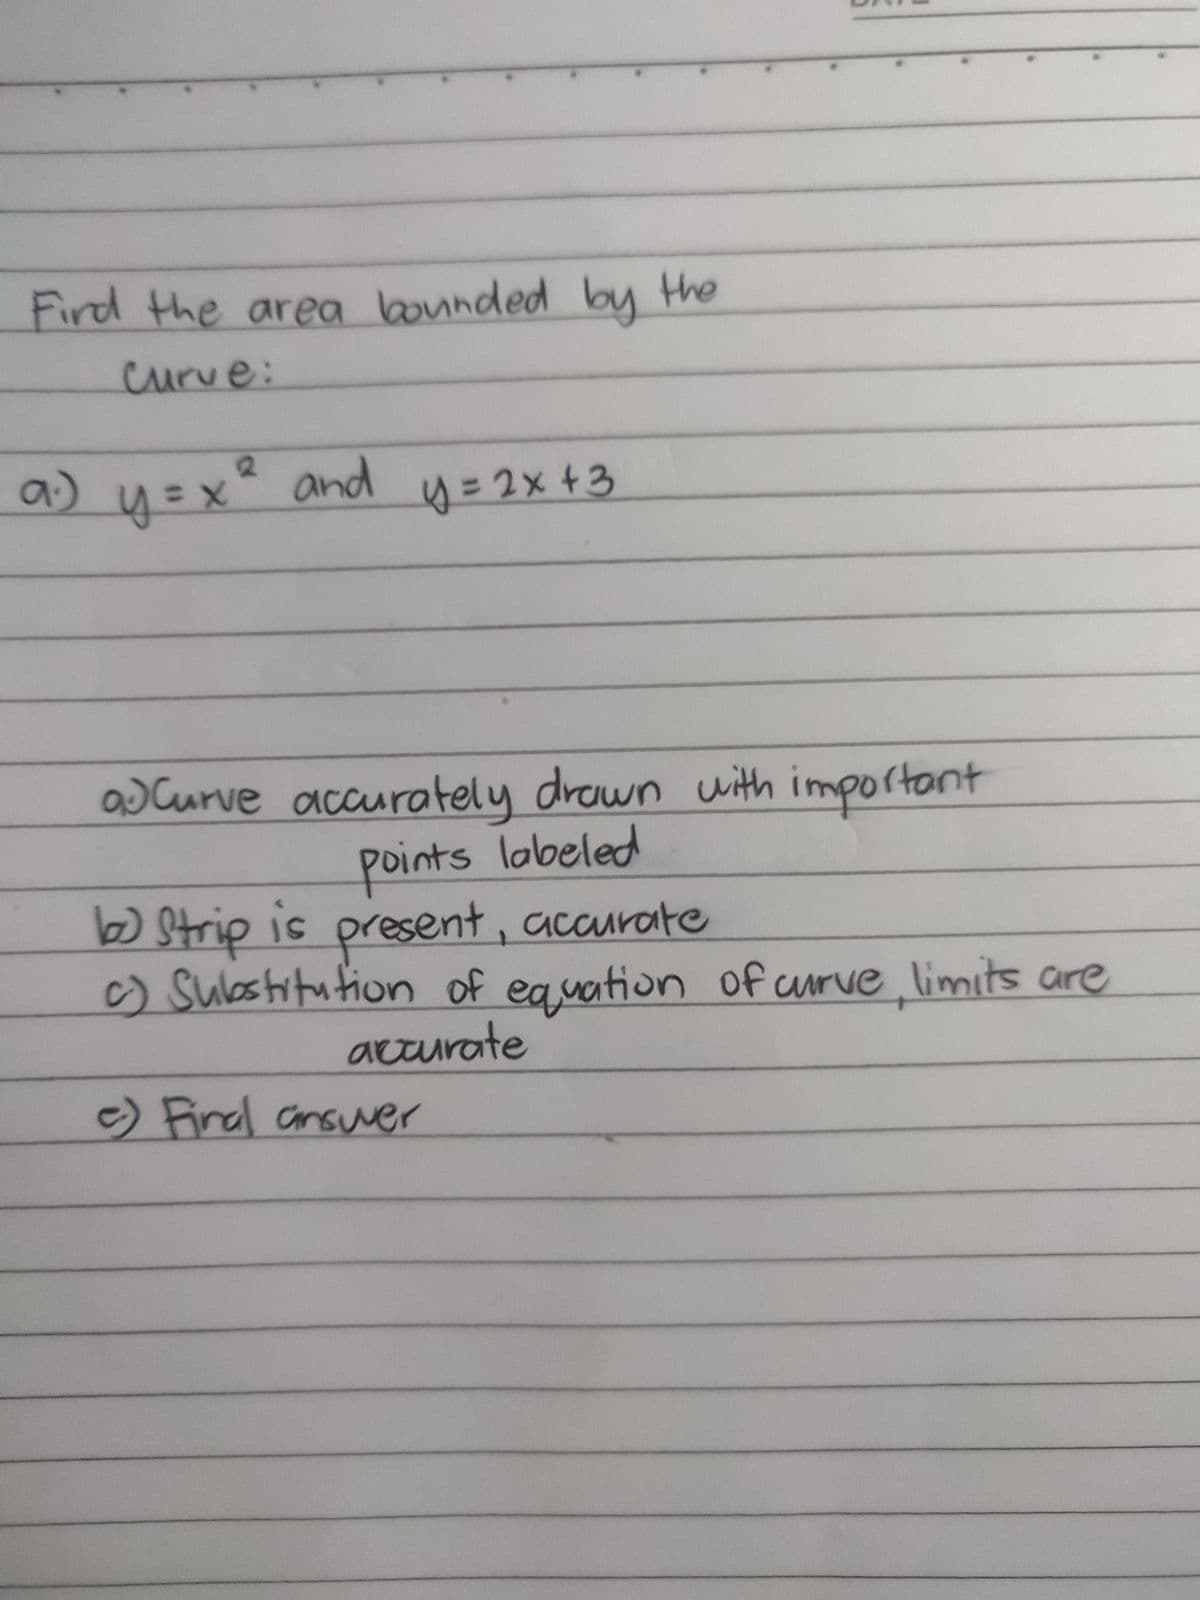 Find the area bounded by the
curve:
a.) y = x² and y = 2x + 3
a.) Curve accurately drawn with important
points labeled
b.) Strip is present, accurate
c.) Substitution of equation of curve, limits are
accurate
c.) Final answer